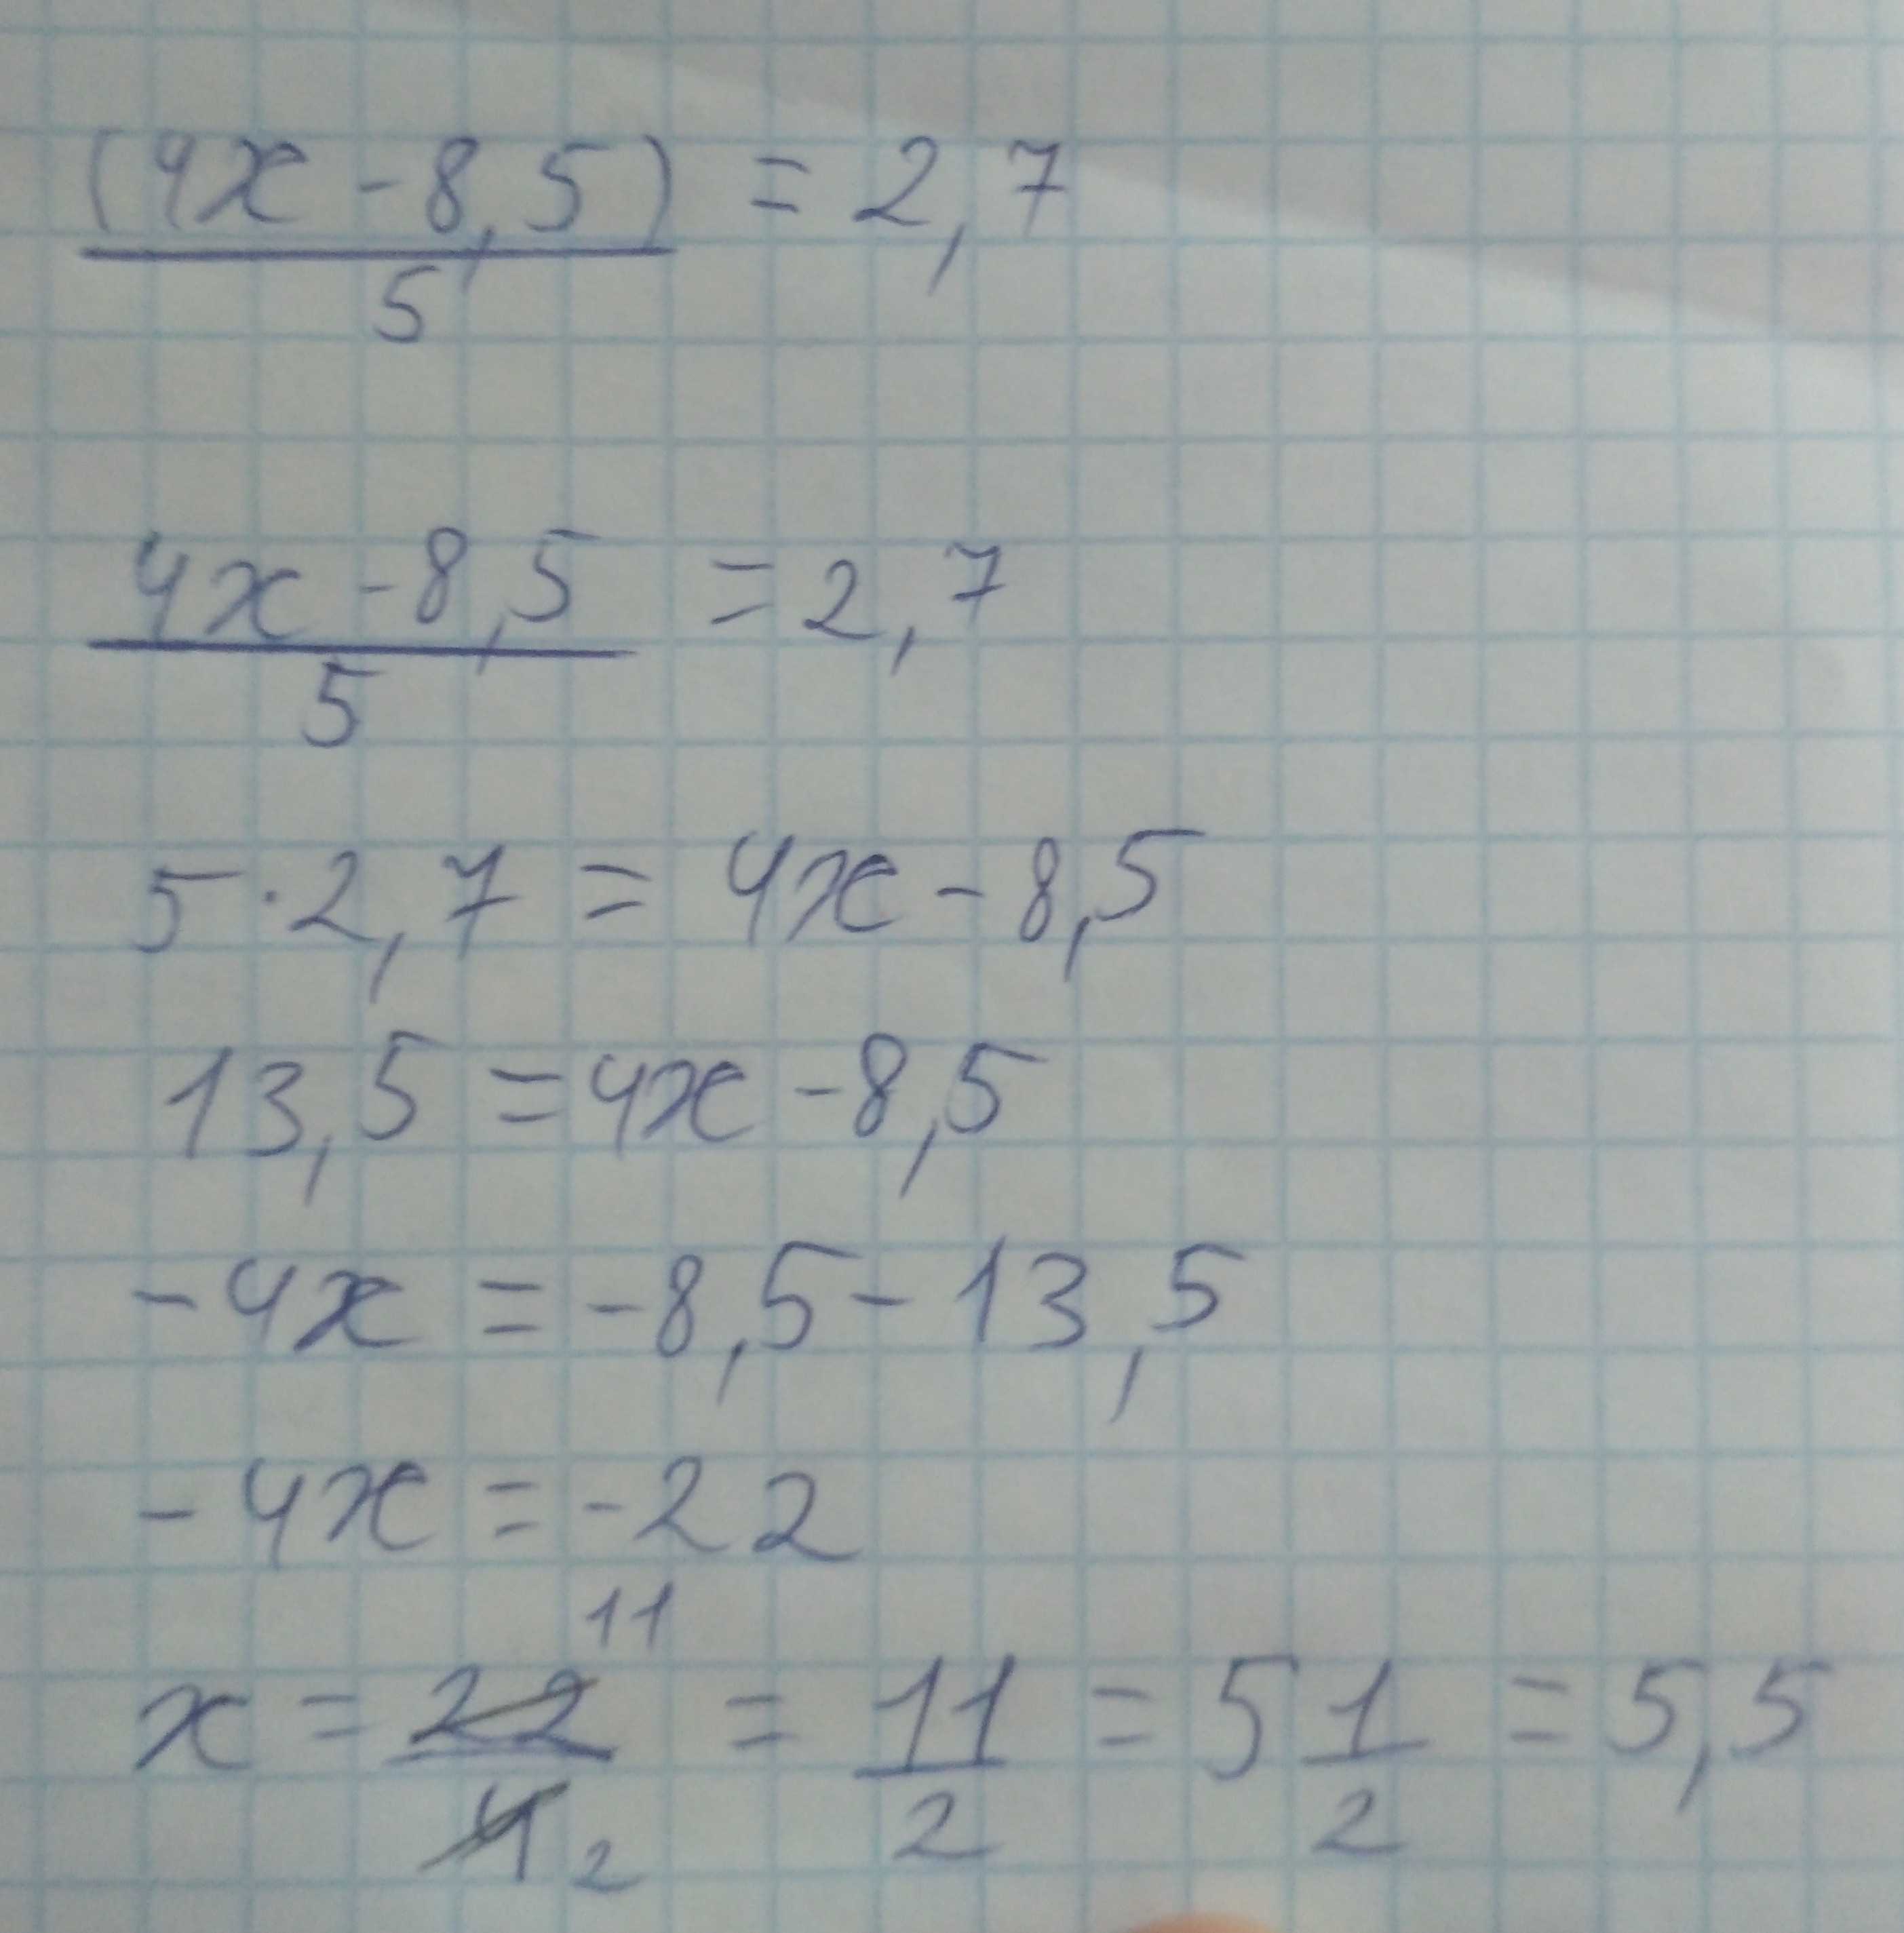 (4x - 8,5)/5 = 2,7
4x - 8,5/5 = 2,7
5 · 2,7 = 4x - 8,5
13,5 = 4x - 8,5
-4x = -8,5 - 13,5
-4x = -22
x = 22 11/4 2 = 11/2 = 5 1/2 = 5,5